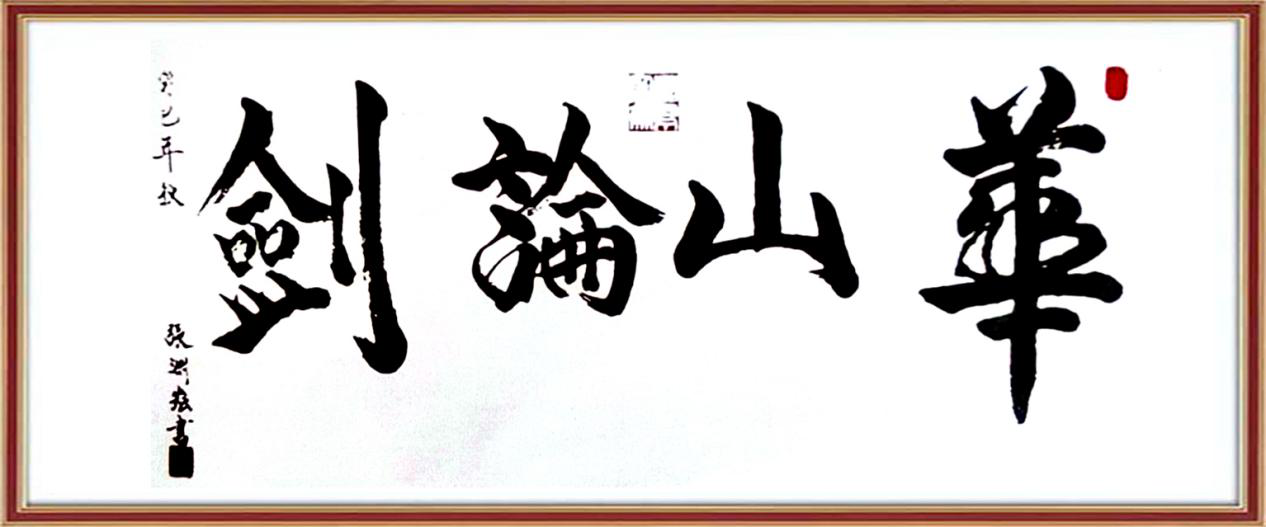 華山論劍
癸巳年秋
張淵書